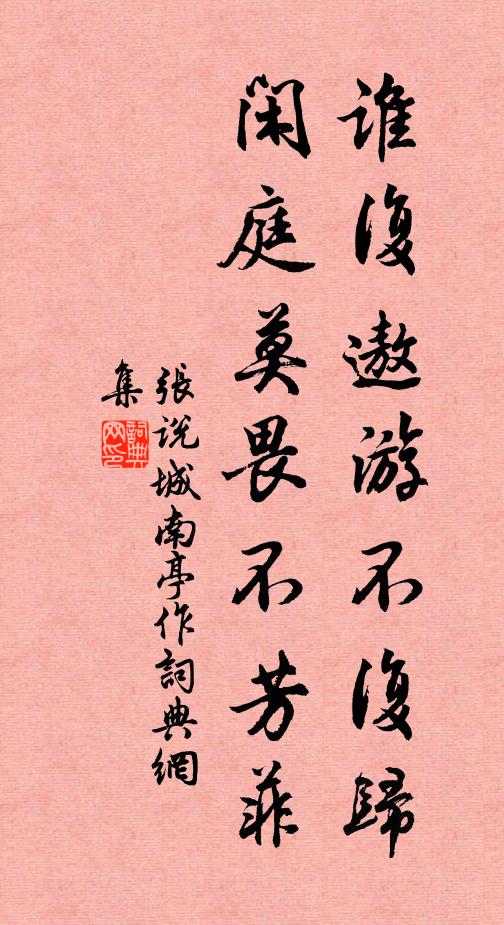 谁復遨游不復歸
闲庭莫畏不芳菲
張说城南亭作詞典網
集
詞典
网印